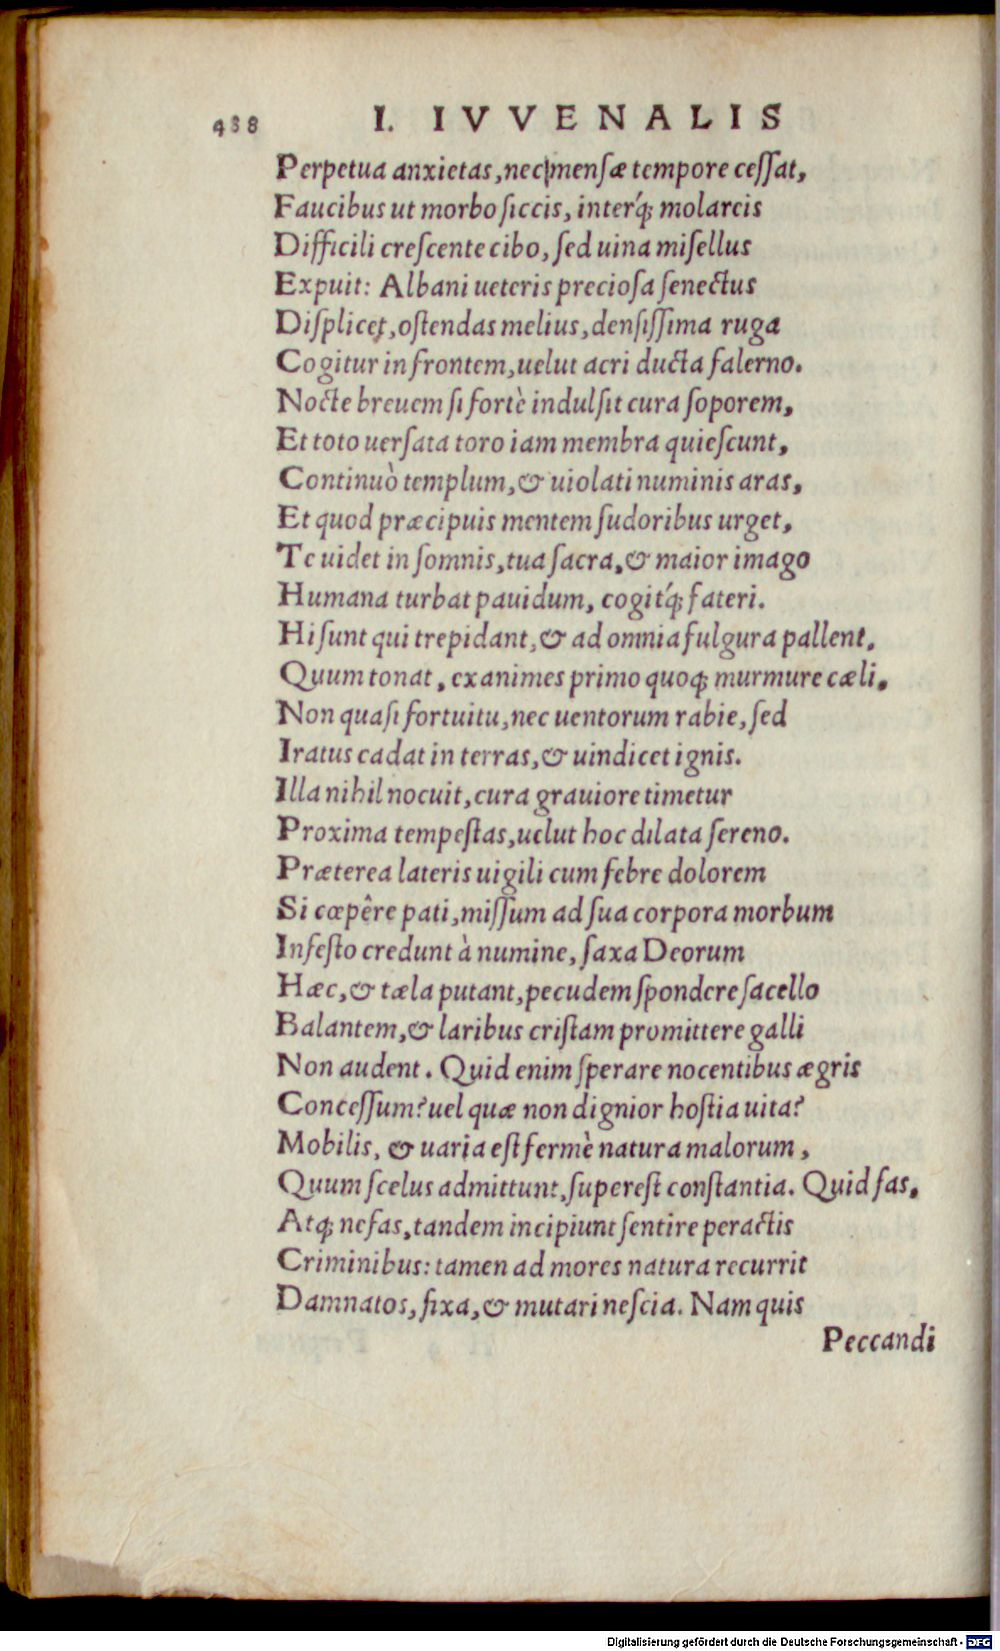 488 I. IVVENALIS
Perpetua anxietas, nec mensæ tempore cessat,
Faucibus ut morbo siccis, interq́; molareis
Difficili crescente cibo, sed uina misellus
Expuit: Albani ueteris preciosa senectus
Displicet, ostendas melius, densissima ruga
Cogitur in frontem, uelut acri ducta falerno.
Nocte breuem si fortè indulsit cura soporem,
Et toto uersata toro iam membra quiescunt,
Continuò templum, & uiolati numinis aras,
Et quod præcipuis mentem sudoribus urget,
Te uidet in somnis, tua sacra, & maior imago
Humana turbat pauidum, cogitq́; fateri.
Hi sunt qui trepidant, & ad omnia fulgura pallent,
Quum tonat, exanimes primo quoq; murmure cæli,
Non quasi fortuitu, nec uentorum rabie, sed
Iratus cadat in terras, & uindicet ignis.
Illa nihil nocuit, cura grauiore timetur
Proxima tempestas, uelut hoc dilata sereno.
Præterea lateris uigili cum febre dolorem
Si cœpêre pati, missum ad sua corpora morbum
Infesto credunt à numine, saxa Deorum
Hæc, & tæla putant, pecudem spondere sacello
Balantem, & laribus cristam promittere galli
Non audent. Quid enim sperare nocentibus ægris
Concessum? uel quæ non dignior hostia uita?
Mobilis, & uaria est fermè natura malorum,
Quum scelus admittunt, superest constantia. Quid fas,
Atq; nefas, tandem incipiunt sentire peractis
Criminibus: tamen ad mores natura recurrit
Damnatos, fixa, & mutari nescia. Nam quis
Peccandi
Digitalisierung gefördert durch die Deutsche Forschungsgemeinschaft - DFG